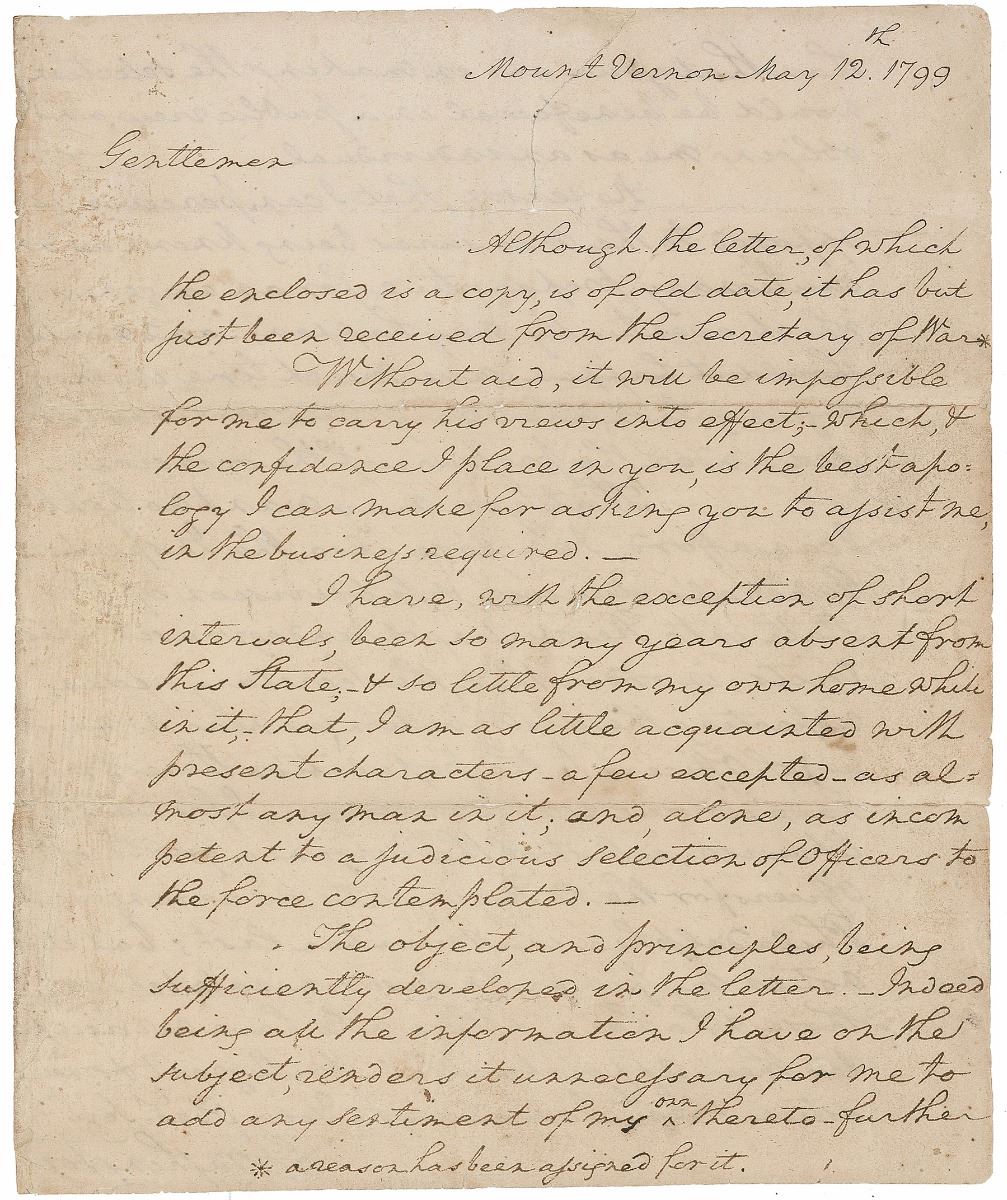 Mount Vernon May 12.th 1799
Gentlemen
Although the letter, of which
the enclosed is a copy, is of old date, it has but
just been received from the Secretary of War*
Without aid, it will be impossible
for me to carry his views into effect;- which, &
the confidence I place in you, is the best apo:
logy I can make for asking you to assist me,
in the business required. —
I have, with the exception of short
intervals, been so many years absent from
this State;- & so little from my own home while
in it,- that, I am as little acquainted with
present characters - a few excepted - as al=
most any man in it; and, alone, as incom
petent to a judicious selection of Officers to
the force contemplated. —
The object, and principles, being
sufficiently developed in the letter. - Indeed
being all the information I have on the
subject, renders it unnecessary for me to
add any sentiment of my own thereto - further
* a reason has been assigned for it.